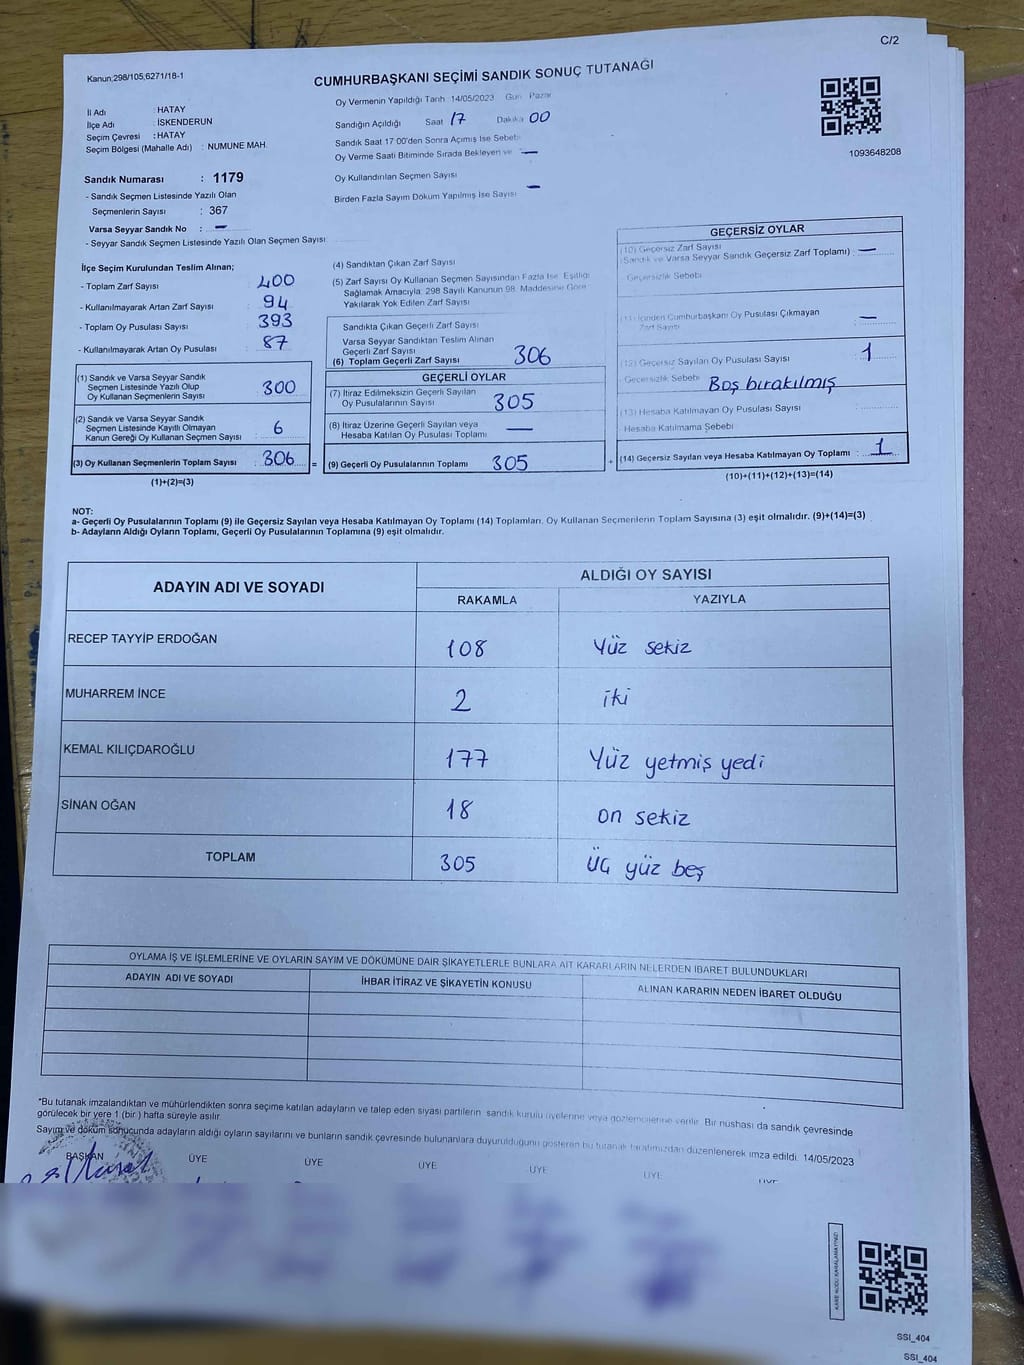 C/2
Kanun;298/105,6271/18-1
CUMHURBAŞKANI SEÇİMİ SANDIK SONUÇ TUTANAĞI
İl Adı : HATAY
İlçe Adı : İSKENDERUN
Seçim Çevresi : HATAY
Seçim Bölgesi (Mahalle Adı) : NUMUNE MAH.
Oy Vermenin Yapıldığı Tarih 14/05/2023 Gün Pazar
Sandığın Açıldığı Saat 17 Dakika 00
Sandık Saat 17:00'den Sonra Açımış İse Sebebi
Oy Verme Saati Bitiminde Sırada Bekleyen ve —
Oy Kullandırılan Seçmen Sayısı
Birden Fazla Sayım Döküm Yapılmış İse Sayısı —
1093648208
Sandık Numarası : 1179
- Sandık Seçmen Listesinde Yazılı Olan
Seçmenlerin Sayısı : 367
Varsa Seyyar Sandık No : —
- Seyyar Sandık Seçmen Listesinde Yazılı Olan Seçmen Sayısı
İlçe Seçim Kurulundan Teslim Alınan;
- Toplam Zarf Sayısı 400
- Kullanılmayarak Artan Zarf Sayısı 94
- Toplam Oy Pusulası Sayısı 393
- Kullanılmayarak Artan Oy Pusulası 87
(1) Sandık ve Varsa Seyyar Sandık
Seçmen Listesinde Yazılı Olup
Oy Kullanan Seçmenlerin Sayısı 300
(2) Sandık ve Varsa Seyyar Sandık
Seçmen Listesinde Kayıtlı Olmayan
Kanun Gereği Oy Kullanan Seçmen Sayısı : 6
(3) Oy Kullanan Seçmenlerin Toplam Sayısı : 306
(1)+(2)=(3)
(4) Sandıktan Çıkan Zarf Sayısı
(5) Zarf Sayısı Oy Kullanan Seçmen Sayısından Fazla İse, Eşitliği
Sağlamak Amacıyla, 298 Sayılı Kanunun 98. Maddesine Göre
Yakılarak Yok Edilen Zarf Sayısı
Sandıkta Çıkan Geçerli Zarf Sayısı
Varsa Seyyar Sandıktan Teslim Alınan
Geçerli Zarf Sayısı
(6) Toplam Geçerli Zarf Sayısı 306
GEÇERLİ OYLAR
(7) İtiraz Edilmeksizin Geçerli Sayılan
Oy Pusulalarının Sayısı 305
(8) İtiraz Üzerine Geçerli Sayılan veya
Hesaba Katılan Oy Pusulası Toplamı —
= (9) Geçerli Oy Pusulalarının Toplamı 305
GEÇERSİZ OYLAR
(10) Geçersiz Zarf Sayısı
(Sandık ve Varsa Seyyar Sandık Geçersiz Zarf Toplamı) : —
Geçersizlik Sebebi
(11) İçinden Cumhurbaşkanı Oy Pusulası Çıkmayan
Zarf Sayısı —
(12) Geçersiz Sayılan Oy Pusulası Sayısı 1
Geçersizlik Sebebi Boş bırakılmış
(13) Hesaba Katılmayan Oy Pusulası Sayısı :
Hesaba Katılmama Sebebi
+ (14) Geçersiz Sayılan veya Hesaba Katılmayan Oy Toplamı : 1
(10)+(11)+(12)+(13)=(14)
NOT:
a- Geçerli Oy Pusulalarının Toplamı (9) ile Geçersiz Sayılan veya Hesaba Katılmayan Oy Toplamı (14) Toplamları, Oy Kullanan Seçmenlerin Toplam Sayısına (3) eşit olmalıdır. (9)+(14)=(3)
b- Adayların Aldığı Oyların Toplamı, Geçerli Oy Pusulalarının Toplamına (9) eşit olmalıdır.
ADAYIN ADI VE SOYADI
ALDIĞI OY SAYISI
RAKAMLA YAZIYLA
RECEP TAYYİP ERDOĞAN 108 Yüz sekiz
MUHARREM İNCE 2 iki
KEMAL KILIÇDAROĞLU 177 Yüz yetmiş yedi
SİNAN OĞAN 18 on sekiz
TOPLAM 305 üç yüz beş
OYLAMA İŞ VE İŞLEMLERİNE VE OYLARIN SAYIM VE DÖKÜMÜNE DAİR ŞİKAYETLERLE BUNLARA AİT KARARLARIN NELERDEN İBARET BULUNDUKLARI
ADAYIN ADI VE SOYADI İHBAR İTİRAZ VE ŞİKAYETİN KONUSU ALINAN KARARIN NEDEN İBARET OLDUĞU
*Bu tutanak imzalandıktan ve mühürlendikten sonra seçime katılan adayların ve talep eden siyasi partilerin sandık kurulu üyelerine veya gözlemcilerine verilir. Bir nüshası da sandık çevresinde
görülecek bir yere 1 (bir ) hafta süreyle asılır.
Sayım ve döküm sonucunda adayların aldığı oyların sayılarını ve bunların sandık çevresinde bulunanlara duyurulduğunu gösteren bu tutanak tarafımızdan düzenlenerek imza edildi. 14/05/2023
BAŞKAN ÜYE ÜYE ÜYE ÜYE ÜYE ÜYE
KARE KODU KARALAMAYINIZ!
SSI_404
SSI_404